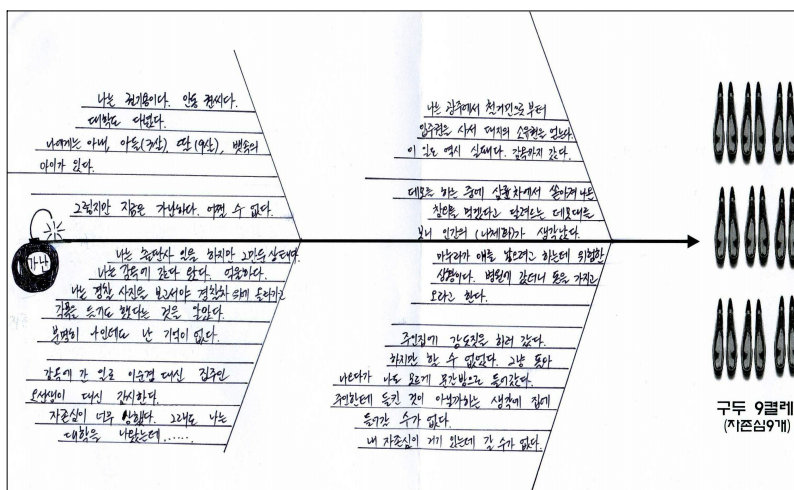 나는 권기용이다. 안동 권씨다.
대학도 다녔다.
나에게는 아내, 아들(3살), 딸(9살), 뱃속의
아이가 있다.
그렇지만 지금은 가난하다. 어쩔 수 없다.
가난
나는 출판사 있음 하지만 그마두 실패다.
나는 감옥에 갔다 왔다. 억울하다.
나는 경찰 사진을 보고서야 경찰차 위에 올라가고
각목을 듯기도 했다는 것을 알았다.
분명히 나인데도 난 기억이 없다.
감옥에 간 일로 이순경 대신 집주인
오선생이 대신 감시한다.
자존심이 너무 상했다. 그래도 나는
대학을 나왔는데......
나는 광주에서 철거민으로부터
입주권은 사서 대지의 소유권은 얻는다
이 일도 역시 실패다. 감옥까지 갔다.
데모를 하는 중에 삼륜차에서 쏟아져 나온
참외를 먹겠다고 달려드는 데모대를
보니 인간의 (나체화)가 생각났다.
마누라가 애를 낳으려고 하는데 위험한
상황이다. 병원에 갔더니 돈을 가지고
오라고 한다.
주인집에 강도짓을 하러 갔다.
하지만 할 수 없었다. 그냥
나오다가 나도 모르게 문간방으로 들어갔다.
주인한테 들킨 것이 아닐까하는 생각에 집에
들어갈 수가 없다.
내 자존심이 거기 있는데 갈 수가 없다.
구두 9결레
(자존심9개)